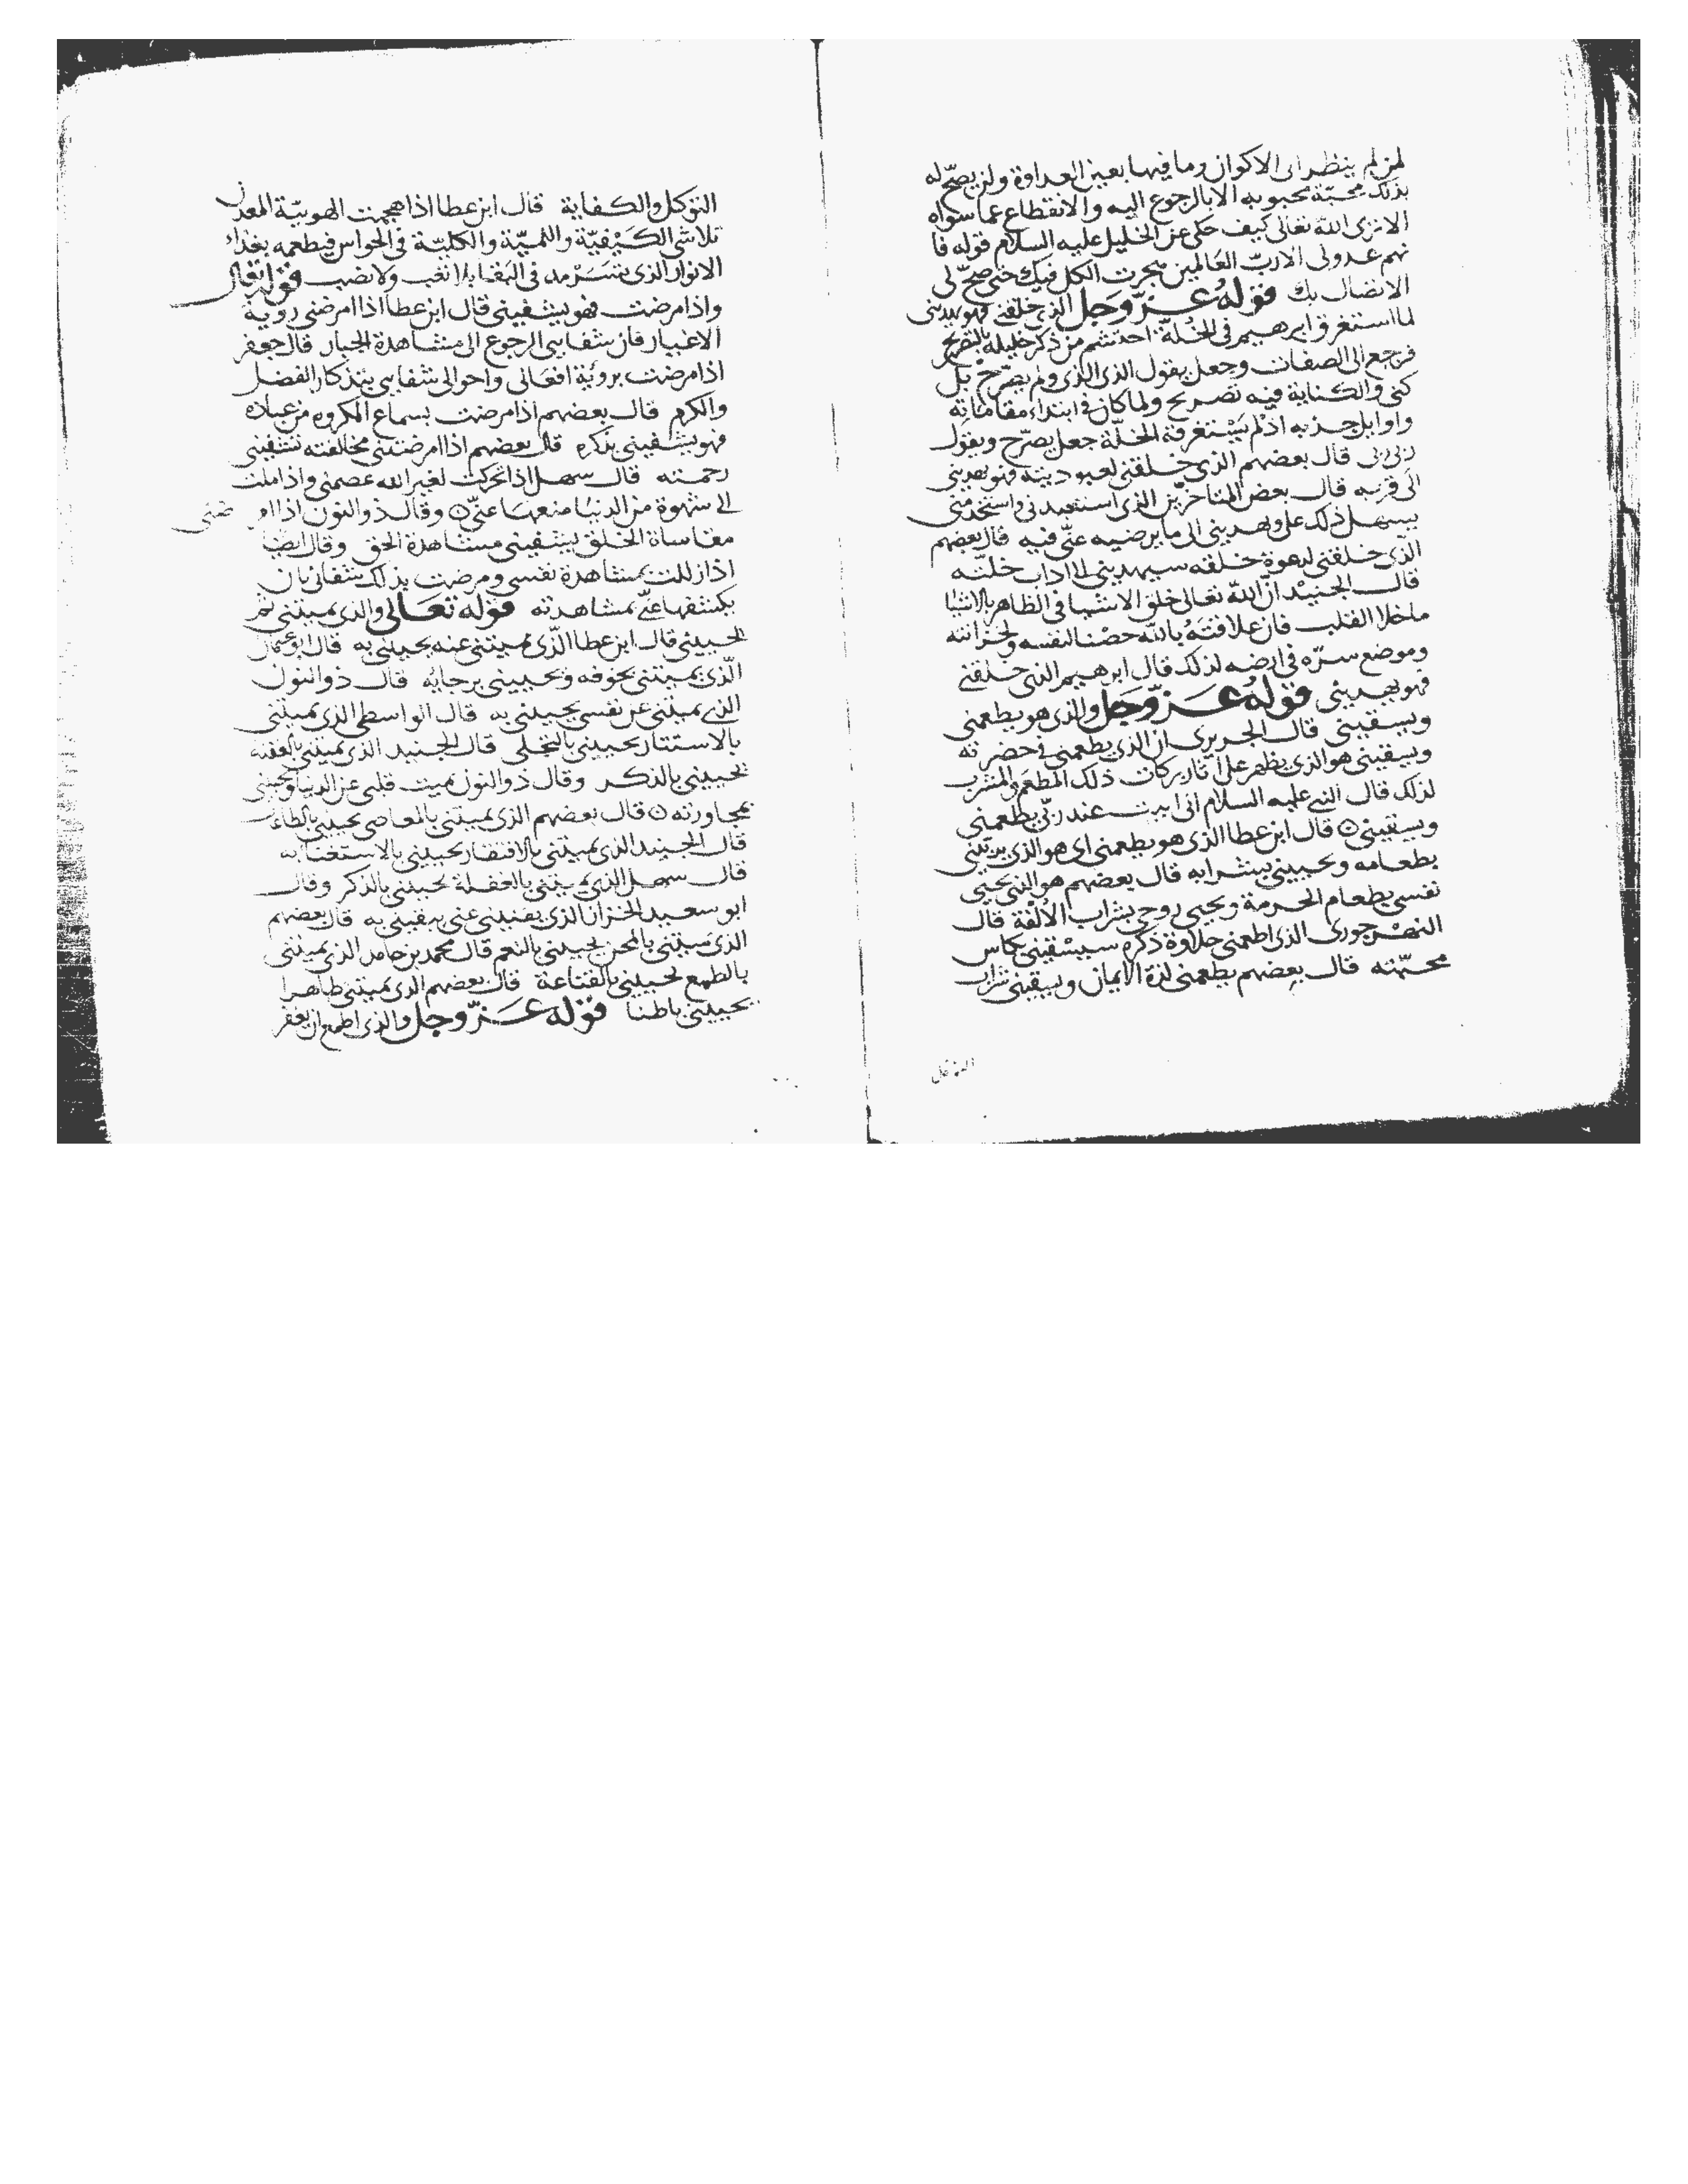 لمن لم ينظر الى الاكوان وما فيها بعين العداوة ولن يصحّ له
بذلك محبّة محبوبه الا بالرجوع اليه والانقطاع عما سواه
الا ترى الله تعالى كيف حكى عن الخليل عليه السلام قوله فا
نهم عدو لى الا ربّ العالمين هجرت الكل فيك حتى صحّ لى
الاتصال بك قوله عزّ وجل الذى خلقنى فهو يهدينى
لما استغرق ابرهيم فى الخلّة احتشم من ذكر خليله بالتصريح
فرجع الى الصفات وجعل يقول الذى الذى ولم يصرّح بل
كنى والكناية فيه تصريح ولما كان فى ابتداء مقاماته
واوايل جذبه اذ لم يستغرقه الخلّة جعل يصرّح ويقول
ربى ربى قال بعضهم الذى خلقنى لعبوديته فهو يهدينى
الى قربه قال بعض المتاخرين الذى استعبدنى واستخدمنى
سيسهل ذلك على ويهدينى الى ما يرضيه عنّى فيه قال بعضهم
الذى خلقنى لدعوة خلقه سيهدينى الى اداب خلّته
قال الجنيد انّ الله تعالى خلق الاشيا فى الظاهر بالاشيا
ما خلا القلب فان علاقته بالله حصنا لنفسه ولخزانته
وموضع سرّه فى ارضه لذلك قال ابرهيم الذى خلقنى
فهو يهدينى قوله عزّ وجل والذى هو يطعمنى
ويسقينى قال الجريرى ان الذى يطعمنى فى حضرته
ويسقينى هو الذى يظهر على اثار بركات ذلك المطعم والمشرب
لذلك قال النبى عليه السلام انى ابيت عند ربّى يطعمنى
ويسقينى ۞ قال ابن عطا الذى هو يطعمنى اى هو الذى يربينى
بطعامه ويحيينى بشرابه قال بعضهم هو الذى يحيى
نفسى بطعام الحرمة ويحيى روحى بشراب الالفة قال
النهرجورى الذى اطعمنى حلاوة ذكره سيسقينى بكاس
محبّته قال بعضهم يطعمنى لذة الايمان ويسقينى شراب
التوكل والكفاية قال ابن عطا اذا هجمت الهوييّة المعدن
تلاشى الكيفيّة والثميّة والكليّة فى الحواس فيطعمه بغذاء
الانوار الذى يتسرمد فى البقا بلا تعب ولا نصب قوله تعالى
واذا مرضت فهو يشفينى قال ابن عطا اذا امرضنى روية
الاغيار فان شفايى الرجوع الى مشاهدة الجبار قال جعفر
اذا مرضت بروية افعالى واحوالى شفايى بتذكار الفضل
والكرم قال بعضهم اذا مرضت بسماع المكروه من عباده
فهو يشفينى بذكره قال بعضهم اذا امرضتنى مخالفته تشفينى
رحمته قال سهل اذا تحركت لغير الله عصمنى واذا ملت
الى شهوة من الدنيا منعها عنّى ۞ وقال ذو النون اذا امر ضنى
مقاساة الخلق يشفينى مشاهدة الحق وقال ايضا
اذا زللت بمشاهدة نفسى ومرضت بذلك شفائى بان
يكشفها عنّى بمشاهدته قوله تعالى والذى يميتنى ثم
يحيينى قال ابن عطا الذى يميتنى عنه يحيينى به قال ابو عثمان
الّذى يميتنى بخوفه ويحيينى برجايه قال ذو النون
الذى يميتنى عن نفسى يحيينى به قال الواسطى الذى يميتنى
بالاستتار يحيينى بالتجلى قال الجنيد الذى يميتنى بالغفلة
يحيينى بالذكر وقال ذو النون يميت قلبى عن الدنيا ويحيينى
بمجاورته ۞ قال بعضهم الذى يميتنى بالمعاصى يحيينى بالطاعة
قال الجنيد الذى يميتنى بالافتقار يحيينى بالاستغنا به
قال سهل الذى يميتنى بالغفلة يحيينى بالذكر وقال
ابو سعيد الخزاز الذى يفنينى عنى يبقينى به قال بعضهم
الذى يميتنى بالمحن يحيينى بالنعم قال محمد بن حامد الذى يميتنى
بالطمع يحيينى بالقناعة قال بعضهم الذى يميتنى ظاهرا
يحيينى باطنا قوله عزّ وجل والذى اطمع ان يغفر